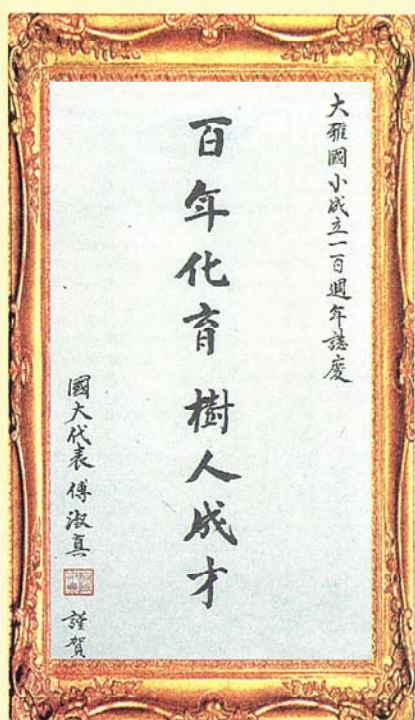 大雅國小成立一百週年誌慶
百年化育 樹人成才
國大代表傅淑真 謹賀